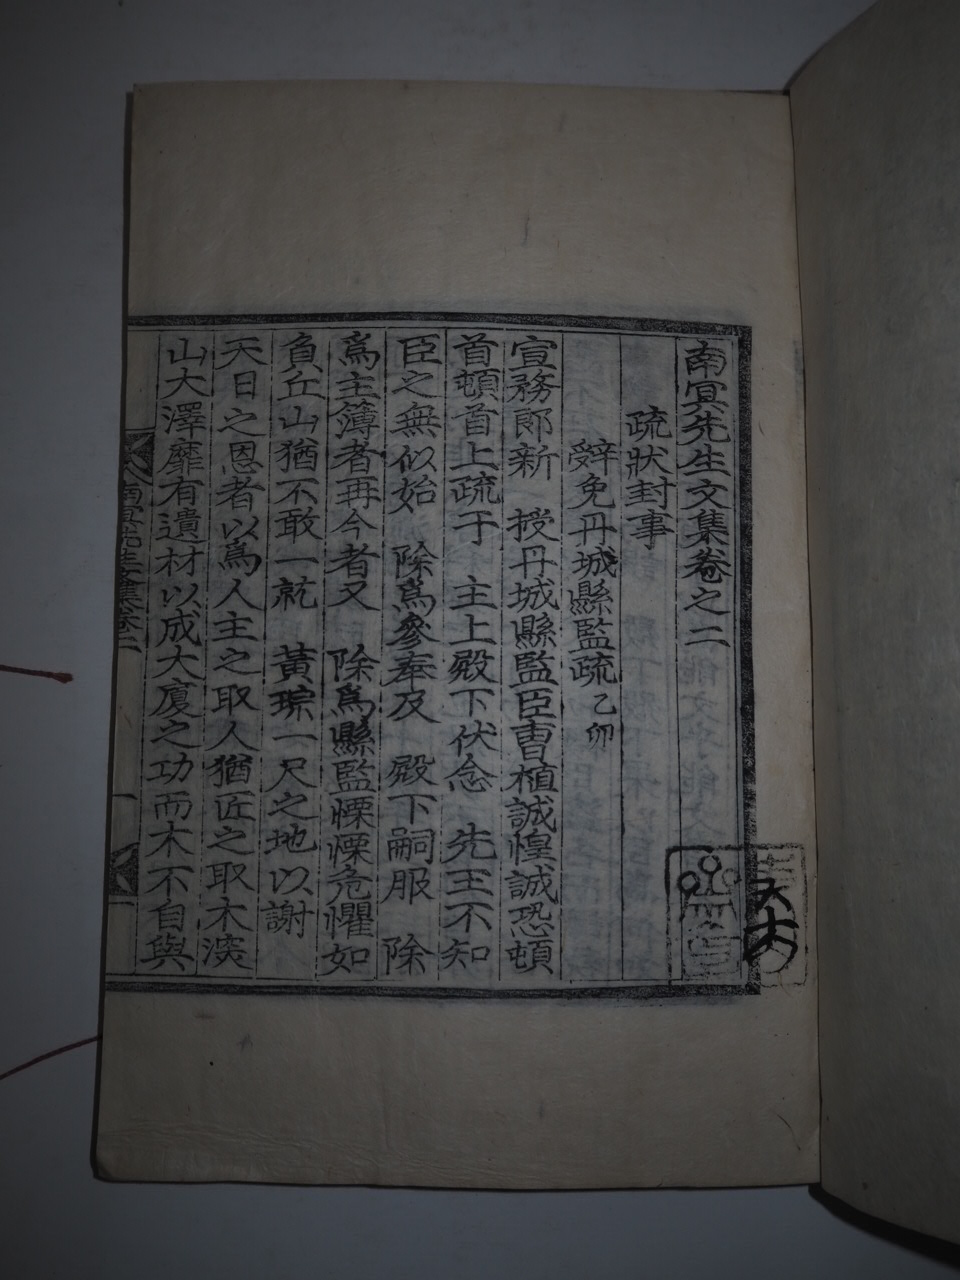 南冥先生文集卷之二
疏狀封事
辭免丹城縣監疏 乙卯
宣務郎新 授丹城縣監臣曺植誠惶誠恐頓
首頓首上疏于 主上殿下伏念 先王不知
臣之無似始 除爲參奉及 殿下嗣服 除
爲主簿者再今者又 除爲縣監慄慄危懼如
負丘山猶不敢一就 黃琮一尺之地以謝
天日之恩者以爲人主之取人猶匠之取木深
山大澤靡有遺材以成大廈之功而木不自與